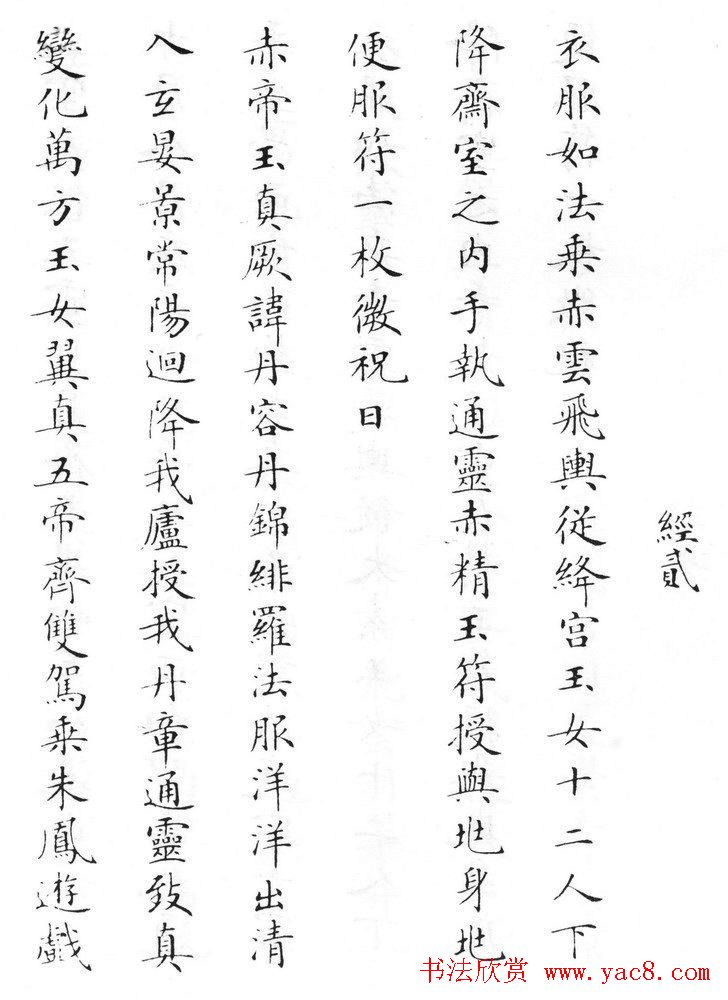 經貳
衣服如法乗赤雲飛輿従絳宫玉女十二人下
降齋室之内手執通靈赤精玉符授與兆身兆
便服符一枚微祝曰
赤帝玉真厥諱丹容丹錦緋羅法服洋洋出清
入玄晏景常陽迴降我廬授我丹章通靈致真
變化萬方玉女翼真五帝齊雙駕乗朱鳳遊戲
书法欣赏 www.yac8.com